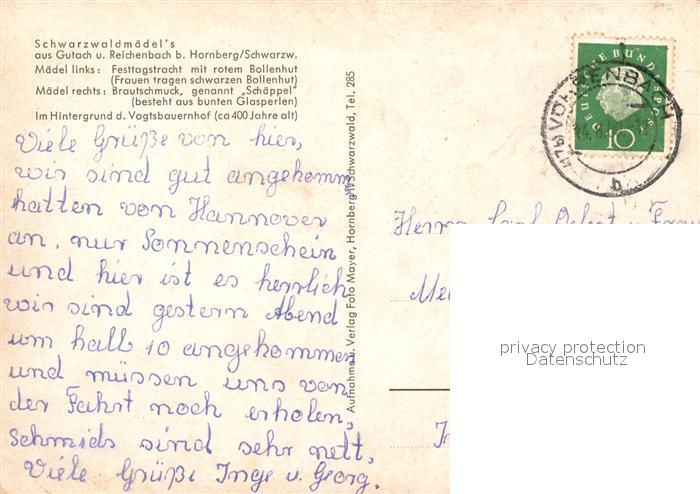 Schwarzwaldmädel's
aus Gutach u. Reichenbach b. Hornberg/Schwarzw.
Mädel links: Festtagstracht mit rotem Bollenhut
(Frauen tragen schwarzen Bollenhut)
Mädel rechts: Brautschmuck, genannt „Schäppel"
(besteht aus bunten Glasperlen)
Im Hintergrund d. Vogtsbauernhof (ca 400 Jahre alt)
Viele Grüße von hier,
wir sind gut angekomm
hatten von Hannover
an, nur Sonnenschein
und hier ist es herrlich
wir sind gestern Abend
um halb 10 angekommen
und müssen uns von
der Fahrt noch erholen,
Schmids sind sehr nett,
Viele Grüße Inge u. Georg.
Aufnahme u. Verlag Foto Mayer, Hornberg/Schwarzwald, Tel. 285
DEUTSCHE BUNDESPOST
10
VÖHRENBACH
b
Herrn u. Frau
privacy protection
Datenschutz